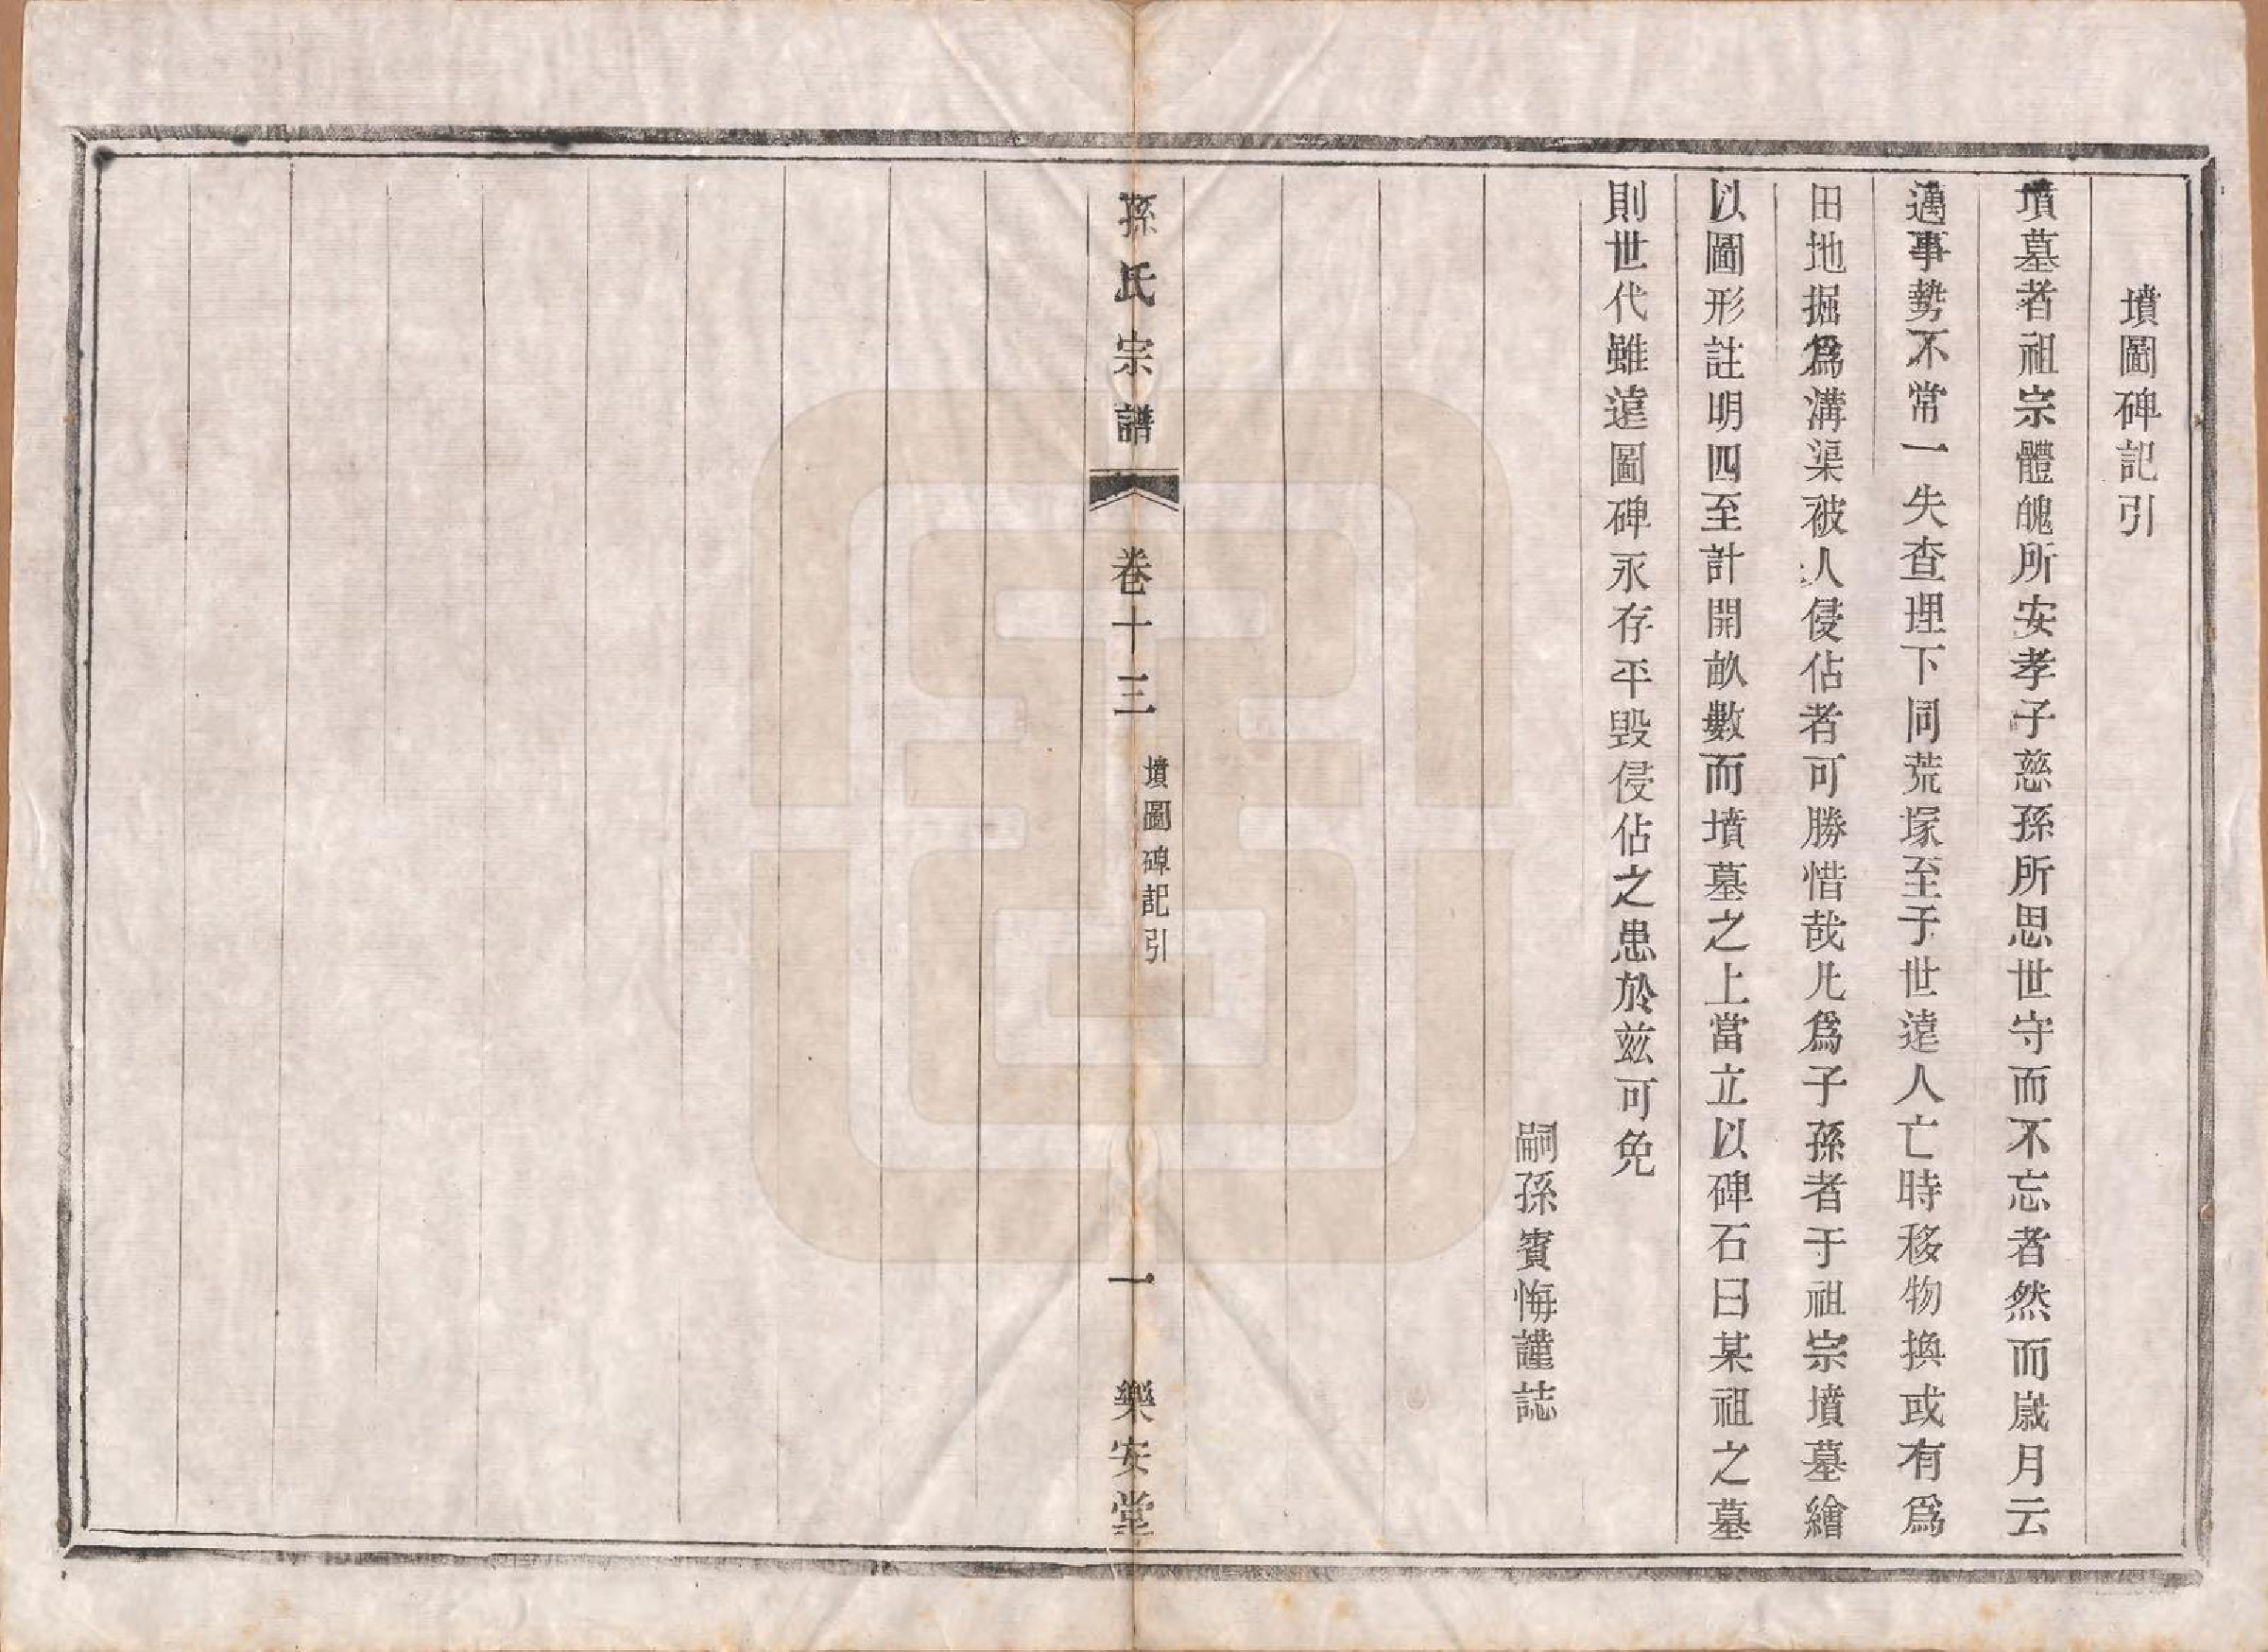 墳圖碑記引
墳墓者祖宗體魄所安孝子慈孫所思世守而不忘者然而歲月云
遇事勢不常一失查理下同荒塚至于世遠人亡時移物換或有爲
田地掘爲溝渠被人侵佔者可勝惜哉凡爲子孫者于祖宗墳墓繪
以圖形註明四至計開畝數而墳墓之上當立以碑石曰某祖之墓
則世代雖遠圖碑永存平毀侵佔之患於玆可免
嗣孫賓悔謹誌
孫氏宗譜
卷十三
墳圖碑記引
一
樂安堂